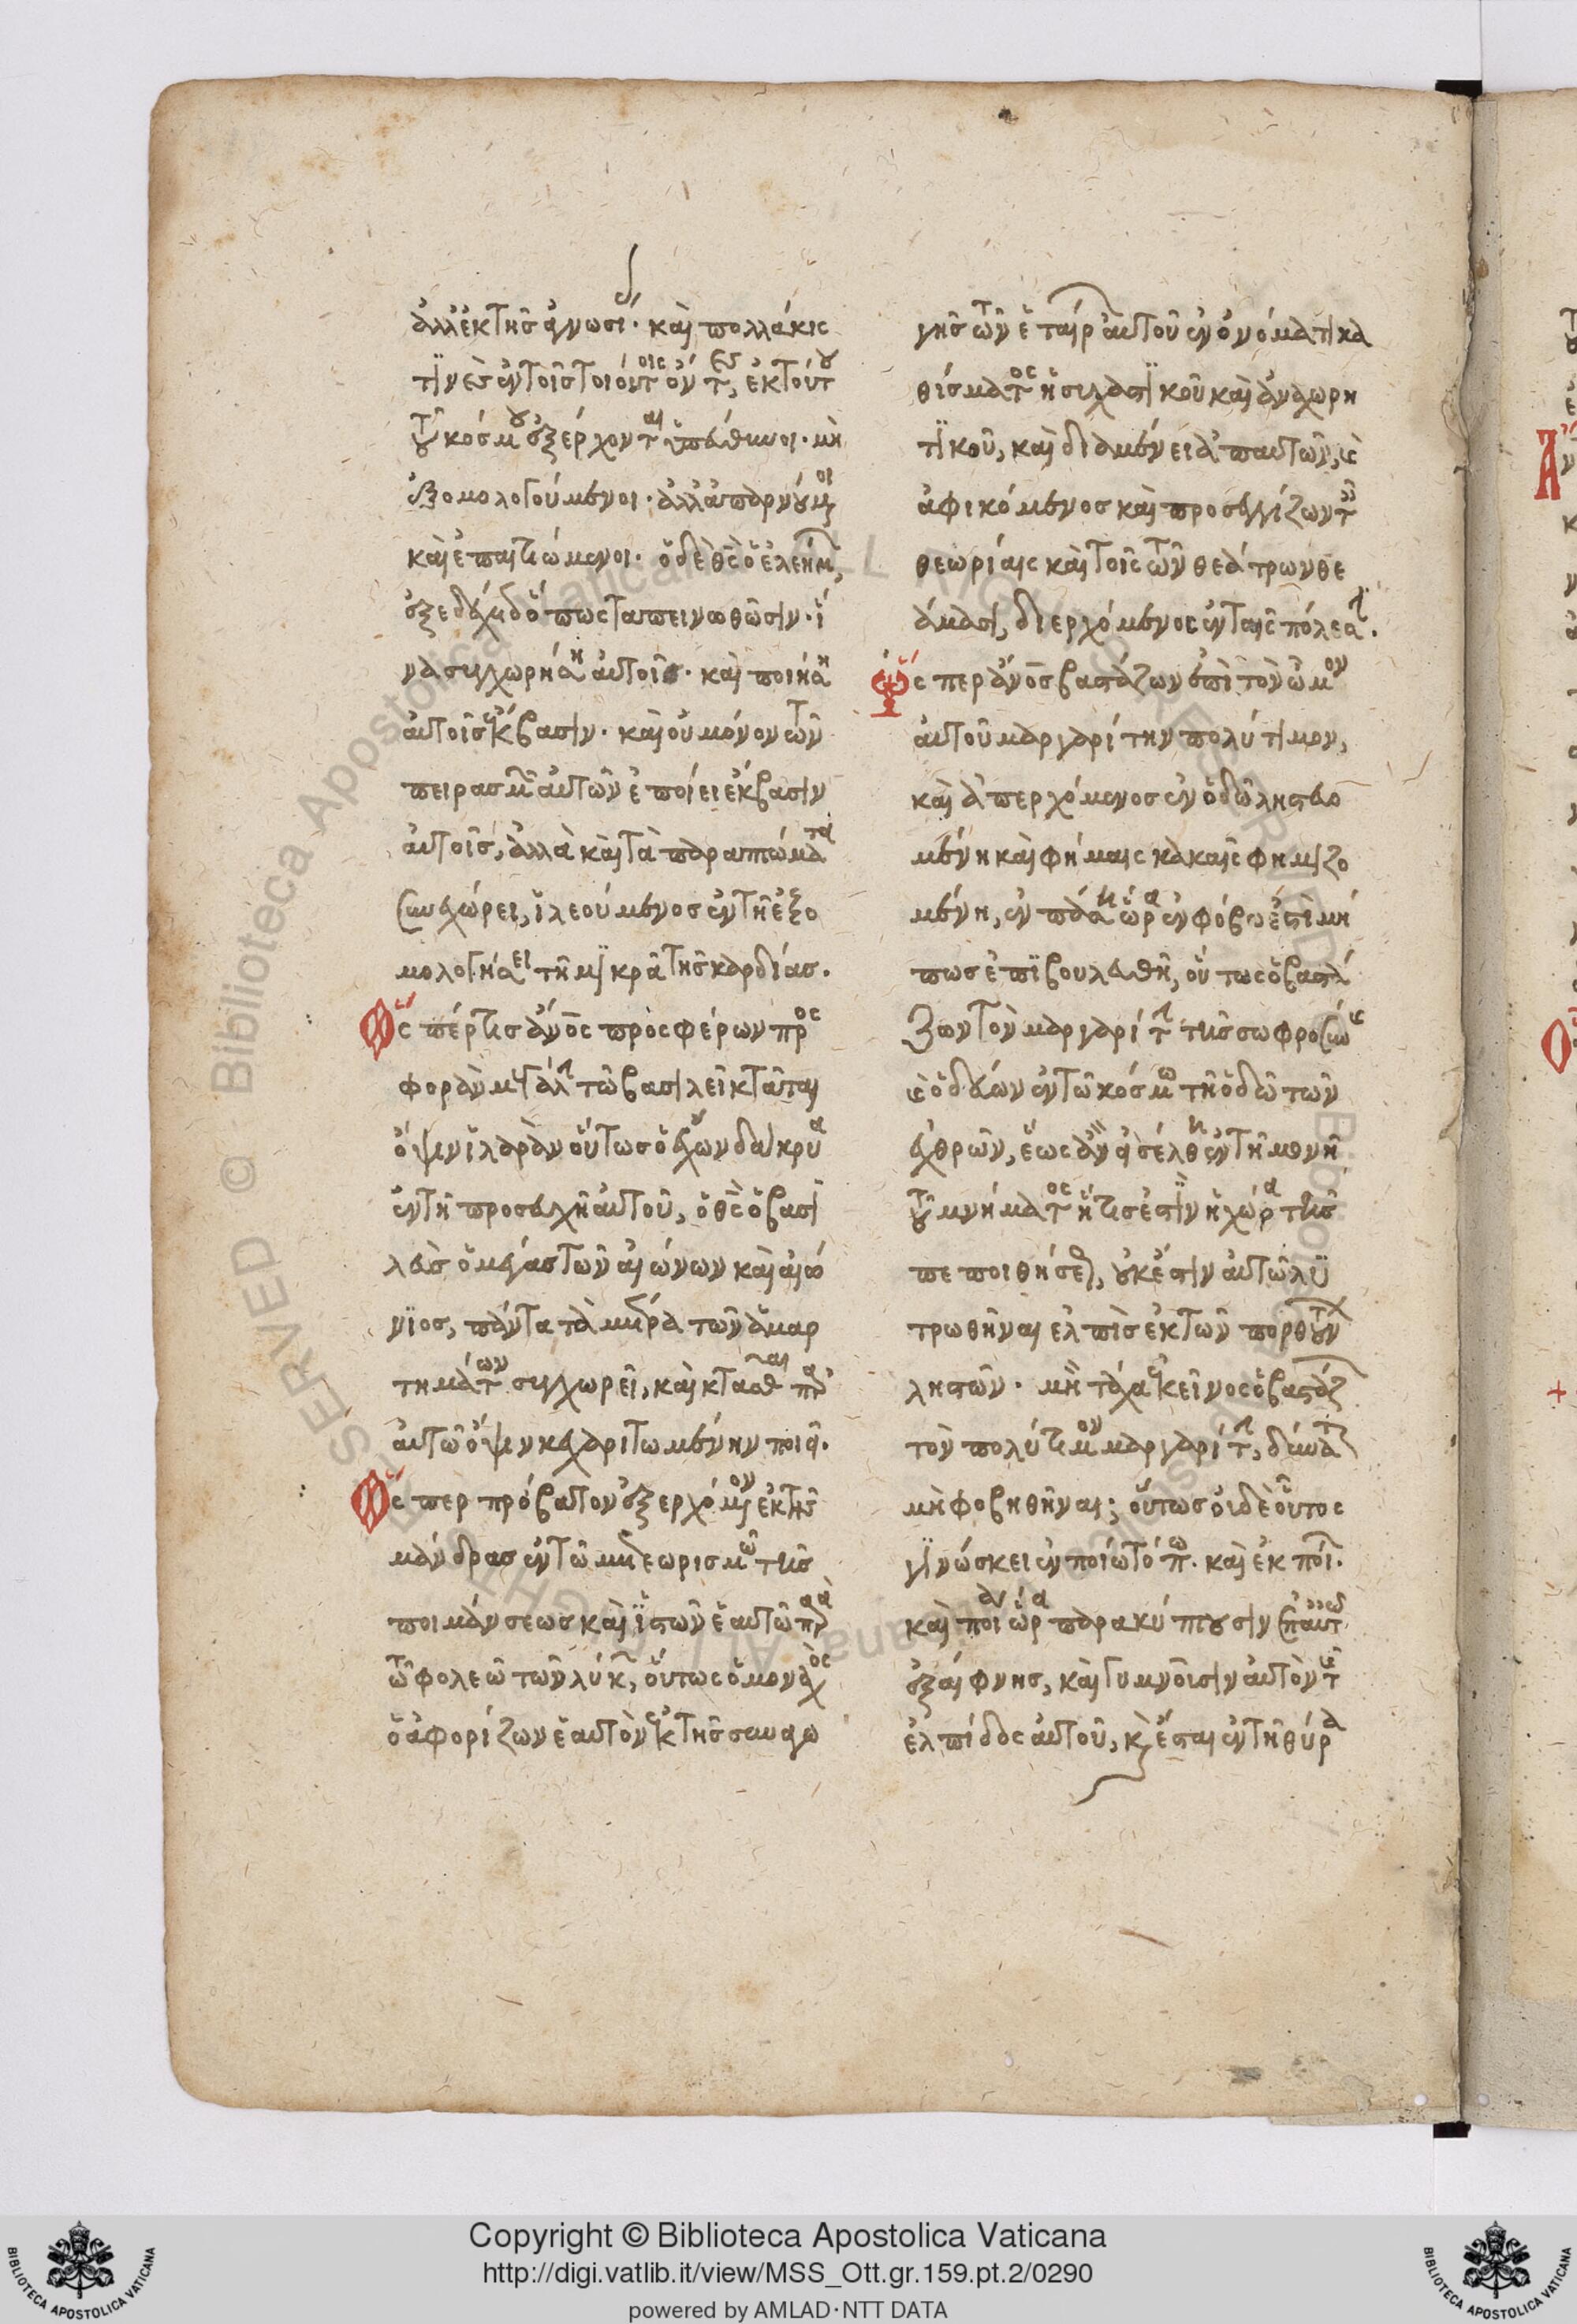 ἀλλ' ἐκ τῆς ἀγνωσί· καὶ πολλάκις
τινὲς ἐν τοῖς τοιούτοις ὄντες, ἐκ τούτου
τοῦ κόσμου ἐξέρχονται
ἐξομολογούμενοι· ἀλλ' ἀπαρνούμενοι
καὶ ὁ δὲ θεὸς ὁ ἐλεήμων,
ὅπως ταπεινωθῶσιν· ἵ
να συγχωρήσῃ αὐτοῖς· καὶ ποιήσῃ
αὐτοῖς ἔκβασιν· καὶ οὐ μόνον τῶν
πειρασμῶν αὐτῶν ἐποίει ἔκβασιν
αὐτοῖς, ἀλλὰ καὶ τὰ παραπτώματα
συνεχώρει, ἱλεούμενος ἐν τῇ ἐξο
μολογήσει τῇ μικρᾷ τῆς καρδίας.
Ὥσπερ τις ἄνος προσφέρων προσ
φορὰν μεγάλην τῷ βασιλεῖ κτᾶται
ὄψιν ἱλαρὰν οὕτως ὁ ἔχων δάκρυα
ἐν τῇ προσευχῇ αὐτοῦ, ὁ θεὸς ὁ βασι
λεὺς ὁ μέγας τῶν αἰώνων καὶ αἰώ
νιος, πάντα τὰ μέτρα τῶν ἁμαρ
τημάτων συγχωρεῖ, καὶ κτᾶσθαι παρ'
αὐτῷ ὄψιν κεχαριτωμένην ποιεῖ.
Ὥσπερ πρόβατον ἐξερχόμενον ἐκ τῆς
μάνδρας ἐν τῷ μετεωρισμῷ τῆς
ποιμάνσεως καὶ ἱστῶν ἑαυτῷ παρὰ
τῷ φολεῷ τῶν λύκων, οὕτως ὁ μοναχὸς
ὁ ἀφορίζων ἑαυτὸν ἐκ τῆς συναγω
γῆς τῶν ἑταίρων αὐτοῦ ἐν ὀνόματι κα
θίσματος ἡσυχαστικοῦ καὶ ἀναχωρη
τικοῦ, καὶ διαμένει ἀπ' αὐτῶν,
ἀφικόμενος καὶ προσεγγίζων ταῖς
θεωρίαις καὶ τοῖς τῶν θεάτρων θε
άμασι, διερχόμενος ἐν ταῖς πόλεσιν.
Ὥσπερ ἄνος βαστάζων ἐπὶ τὸν ὦμον
αὐτοῦ μαργαρίτην πολύτιμον,
καὶ ἀπερχόμενος ἐν ὁδῷ λῃστευο
μένῃ καὶ φήμαις κακαῖς φημιζο
μένῃ, ἐν πάσῃ ὥρᾳ ἐν φόβῳ ἐστὶ μή
πως ἐπιβουλευθῇ, οὕτως ὁ βαστά
ζων τὸν μαργαρίτην τῆς σωφροσύνης
καὶ ὁδεύων ἐν τῷ κόσμῳ τῇ ὁδῷ τῶν
ἐχθρῶν, ἕως ἂν εἰσέλθῃ ἐν τῇ μονῇ
τοῦ μνήματος ἥτις ἐστὶν ἡ χώρα τῆς
πεποιθήσεως, οὐκ ἔστιν αὐτῷ λυ
τρωθῆναι ἐλπὶς ἐκ τῶν πορθούντων
λῃστῶν· μὴ τάχα ἐκεῖνος ὁ βαστάζων
τὸν πολύτιμον μαργαρίτην, δύναται
μὴ φοβηθῆναι; οὕτως οὐδὲ οὗτος
γινώσκει ἐν ποίῳ τόπῳ· καὶ ἐκ ποί·
καὶ ποίαν ὥραν παρακύπτουσιν ἐπ' αὐτὸν
ἐξαίφνης, καὶ γυμνοῦσιν αὐτὸν τῆς
ἐλπίδος αὐτοῦ, καὶ ἔσται ἐν τῇ θύρᾳ
Copyright © Biblioteca Apostolica Vaticana
http://digi.vatlib.it/view/MSS_Ott.gr.159.pt.2/0290
powered by AMLAD·NTT DATA